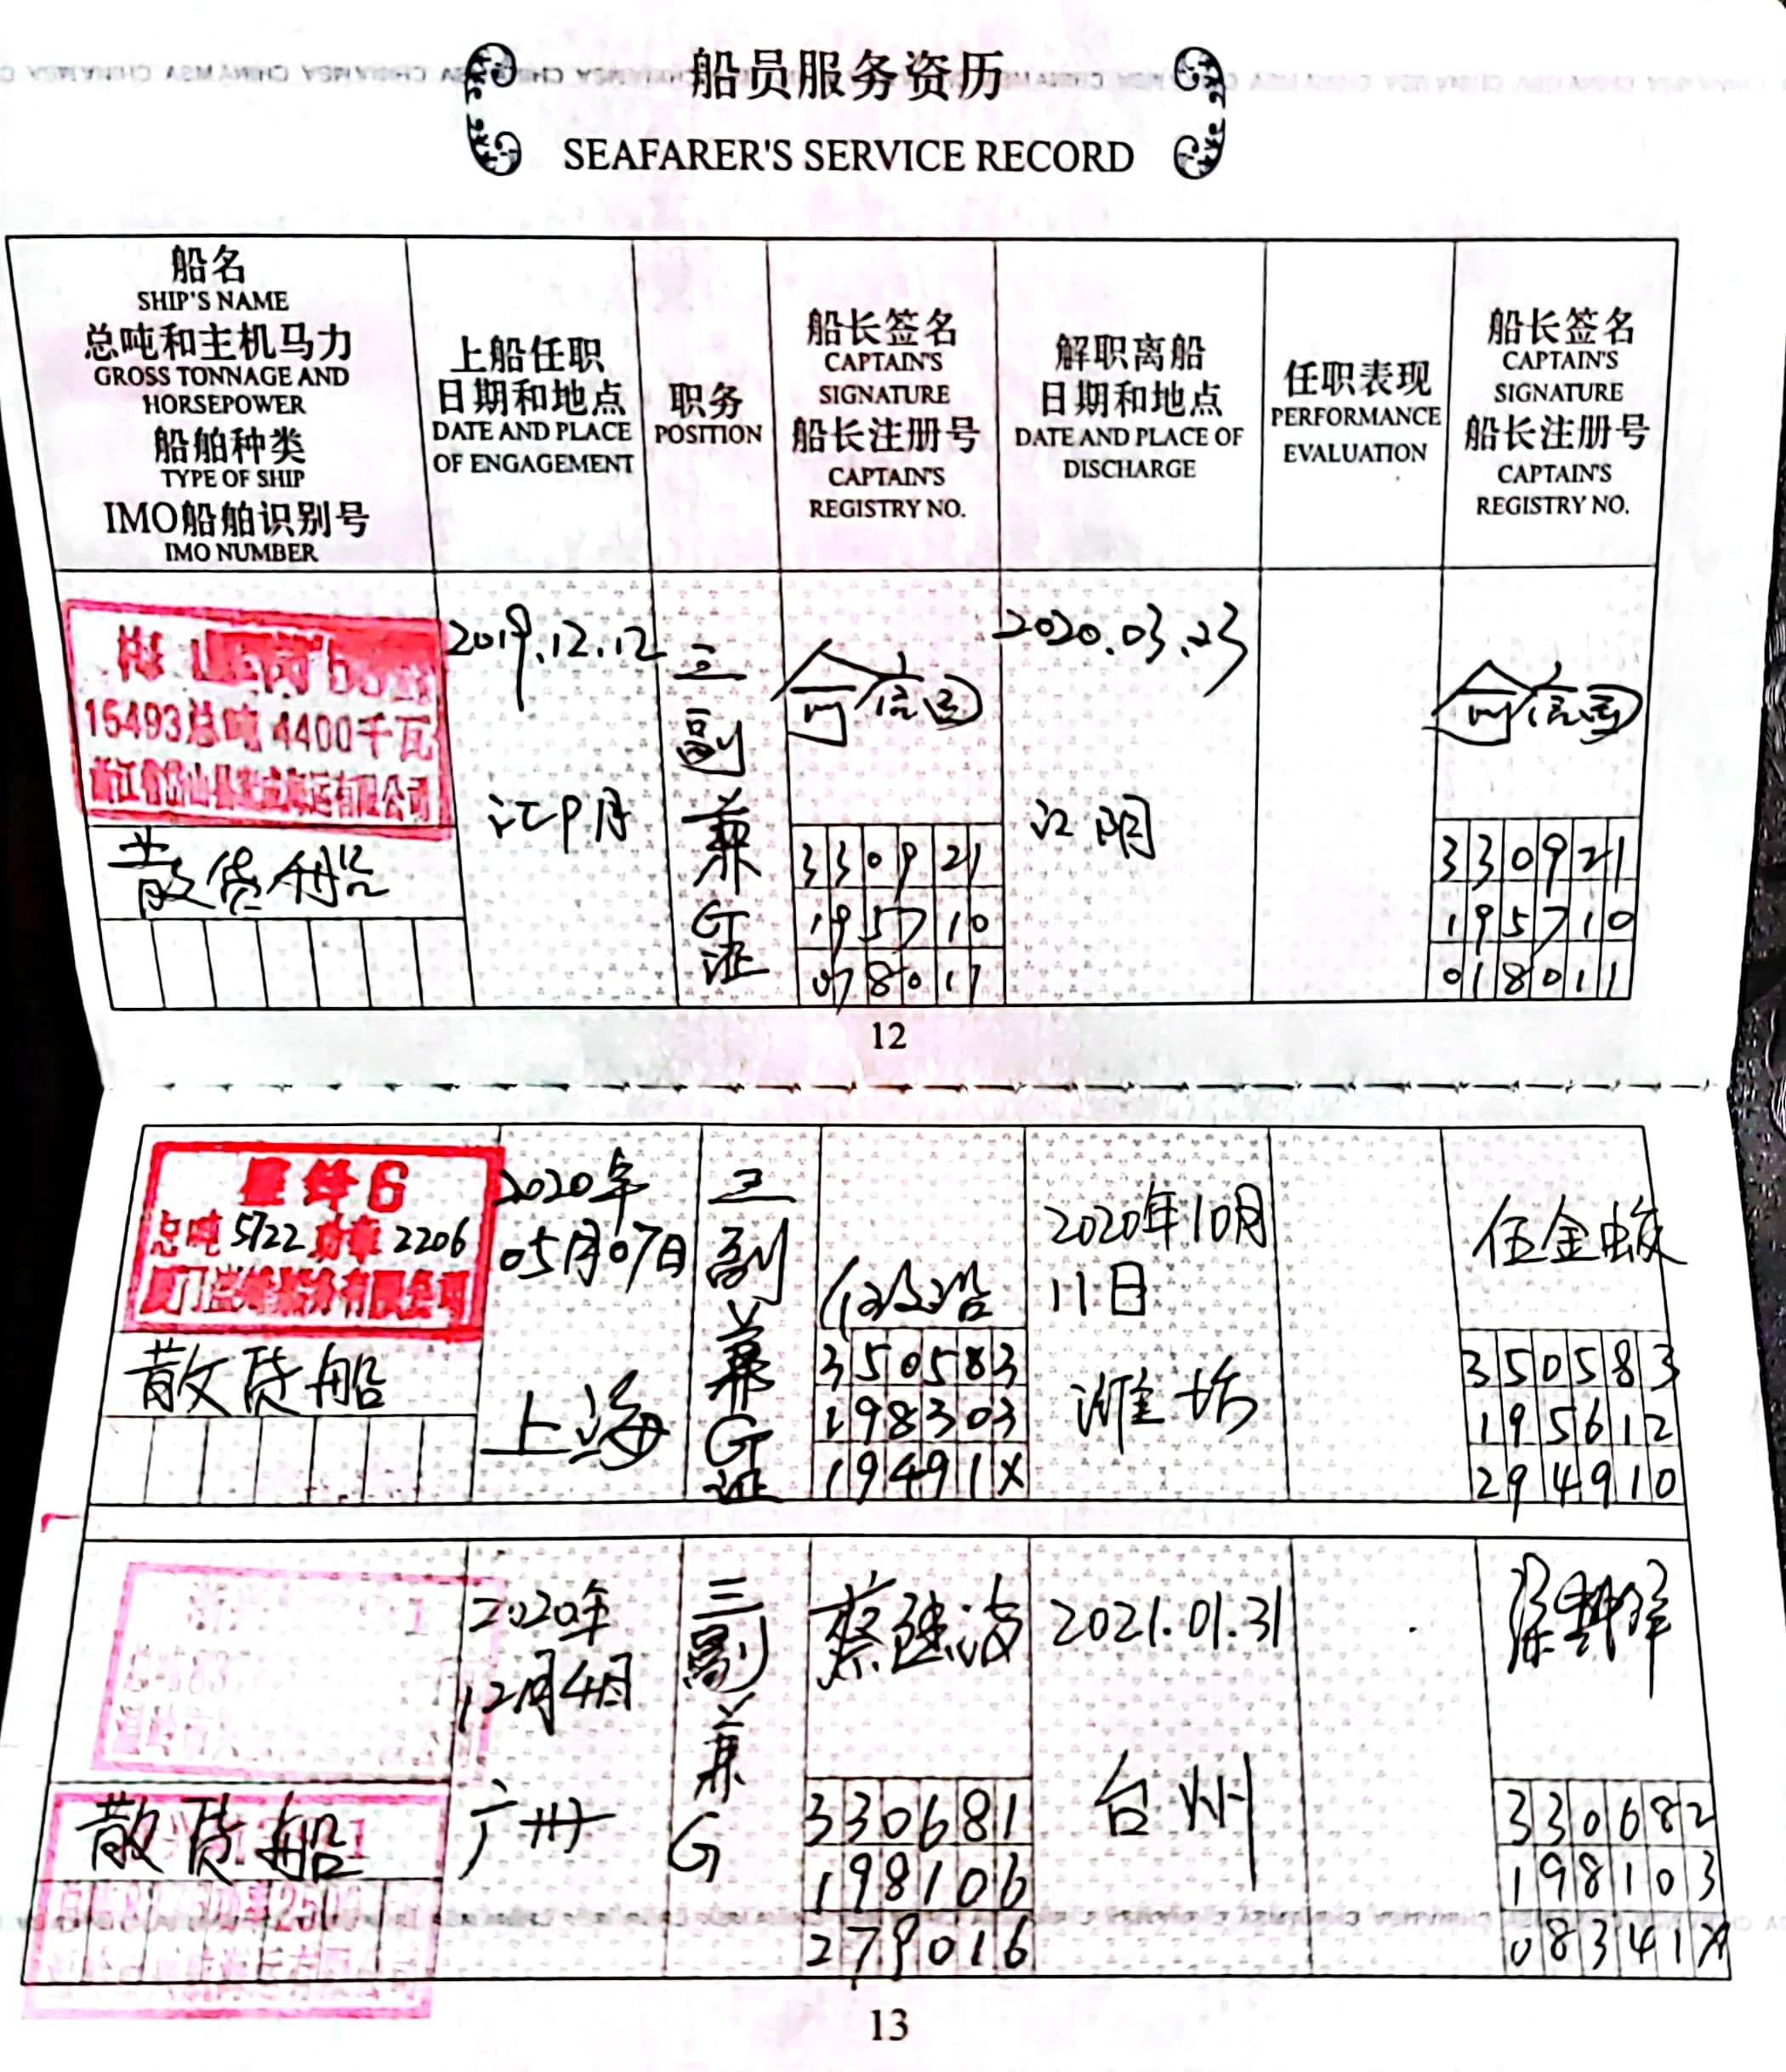 船员服务资历
SEAFARER'S SERVICE RECORD
船名
SHIP'S NAME
总吨和主机马力
GROSS TONNAGE AND
HORSEPOWER
船舶种类
TYPE OF SHIP
IMO船舶识别号
IMO NUMBER
上船任职
日期和地点
DATE AND PLACE
OF ENGAGEMENT
职务
POSITION
船长签名
CAPTAIN'S
SIGNATURE
船长注册号
CAPTAIN'S
REGISTRY NO.
解职离船
日期和地点
DATE AND PLACE OF
DISCHARGE
任职表现
PERFORMANCE
EVALUATION
船长签名
CAPTAIN'S
SIGNATURE
船长注册号
CAPTAIN'S
REGISTRY NO.
15493总吨 4400千瓦
散货船
2019.12.12
江阴
三副兼G证
330921
195710
2020.03.23
江阴
330921
195710
018011
12
6
总吨 5722 功率 2206
散货船
2020年
05月07日
上海
三副兼G证
350583
198303
19491X
2020年10月
11日
潍坊
伍金蛟
350583
195612
294910
散货船
2020年
12月4日
广州
三副兼G
330681
198106
279016
2021.01.31
台州
330682
198103
08341X
13